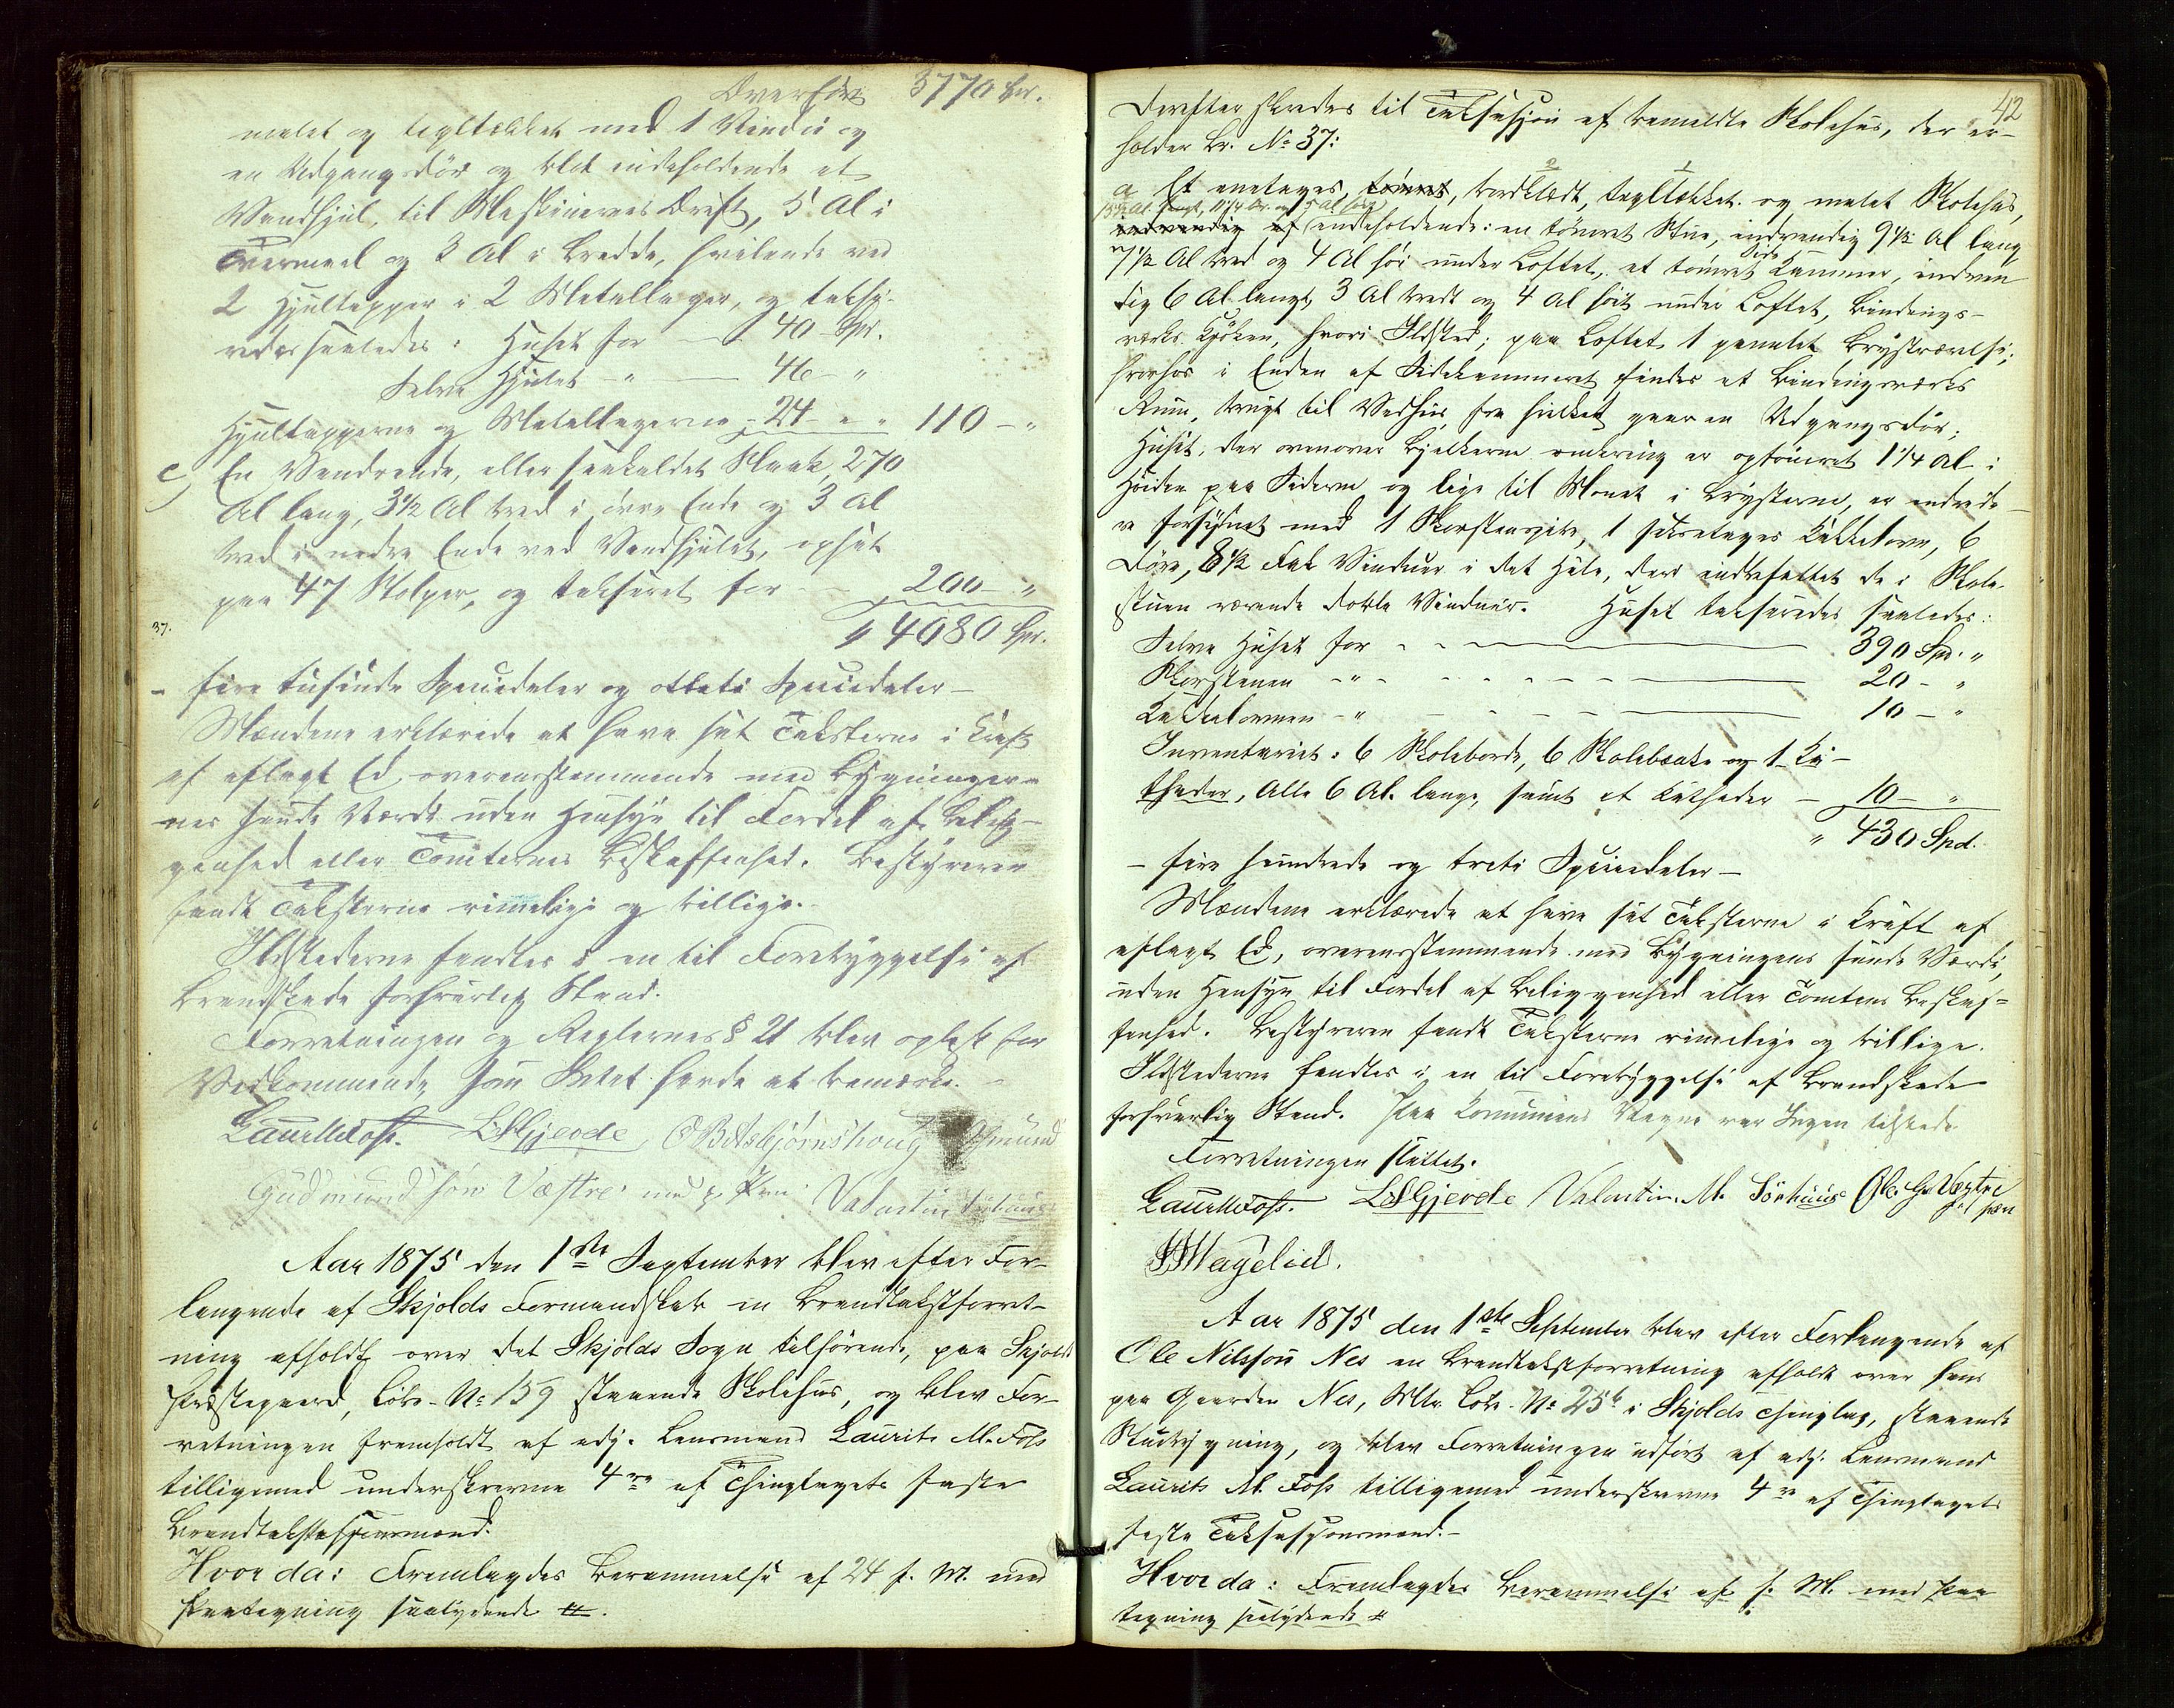 Overført 3770 Spd.
malet og tegltækket med 1 Vindu og
en Udgangsdør og blot indeholdende et
Vandhjul til Maskinernes Drift, 5 Al i
Tvermaal og 3 Al i Bredde, hvilende ved
2 Hjultapper i 2 Metallager, og taksere-
redes saaledes: Huset for — 40 - Spd.
Selve Hjulet - " — 46 - "
Hjultapperne og Metallagerne - 24 - " 110 - "
e) En Vandrende, eller saakaldet Slaak, 270
Al lang, 3 1/2 Al bred i øvre Ende og 3 Al
bred i nedre Ende ved Vandhjulet, opsat
paa 47 Stolper, og takseret for - 200 - "
37. " 4080 Spd.
- fire tusinde Speciedaler og otteti Speciedaler -
Mændene erklærede at have sat Taksterne i Kraft
af aflagt Ed, overensstemmende med Bygninger-
nes sande Værdi uden Hensyn til Fordel af Belig-
genhed eller Tomternes Beskaffenhed. Bestyreren
fandt Taksterne rimelige og billige.
Ildstederne fandtes i en til Forebyggelse af
Brandskade forsvarlig Stand.
Forretningen og Reglernes § 21 blev oplæst for
Vedkommende, som Intet havde at bemærke. -
Laur M Foss. L S Gjerde O B Asbjørnshoug Omund
Gudmundsøn Væstre med p. Pen. Valentin Sørhuus
Aar 1875 den 1ste September blev efter For-
langende af Skjolds Formandskab en Brandtakstforret-
ning afholdt over det Skjolds Sogn tilhørende, paa Skjold
Præstegaard, Løbe-No 159 staaende Skolehus, og blev For-
retningen fremholdt af adj. Lensmand Laurits M. Foss
tilligemed underskrevne 4re af Thinglagets faste
Brandtakstationsmænd.
Hvor da: Fremlagdes Berammelse af 24 f. M. med
Paategning saalydende #.
42
Derefter skredes til Taksasjon af bemeldte Skolehus, der er-
holder Br. No 37:
a Et enetages, tømret, bordklædt, tegltækket og malet Skolehus,
15 1/2 Al. langt, 11 1/4 Br. og 5 Al høit
indvendig af indeholdende: en tømret Stue, indvendig 9 1/2 Al lang
7 1/2 Al bred og 4 Al høi under Loftet, et tømret Side Kammer, indven
dig 6 Al langt, 3 Al bredt og 4 Al høit under Loftet, Bindings-
værks Kjøken, hvori Ildsted; paa Loftet 1 panelet Brystværelse;
hvorhos i Enden af Sidekammeret findes et Bindingsværks
Rum, brugt til Vedhus, fra hvilket gaar en Udgangsdør;
Huset, der ovenover Bjelkerne omkring er optømret 1 1/4 Al i
Høiden paa Siderne og lige til Mønet i Brysterne, er endvide-
re forsynet med 1 Skorstenspibe, 1 Kakkelovn, 6
Døre, 8 1/2 Fak Vinduer i det Hele, deri indbefattet de i Skole-
stuen værende doble Vinduer. Huset takseredes saaledes:
Selve Huset for - - — 390 Spd. "
Skorstenen - " - — 20 - "
Kakkelovnen - " — 10 - "
Inventariet: 6 Skoleborde, 6 Skolebænke og 1 Ka-
theder, Alle 6 Al. lange, samt et Katheder - 10 - "
" 430 Spd.
- fire hundrede og treti Speciedaler -
Mændene erklærede at have sat Taksterne i Kraft af
aflagt Ed, overensstemmende med Bygningens sande Værdi,
uden Hensyn til Fordel af Beliggenhed eller Tomtens Beskaf-
fenhed. Bestyreren fandt Taksterne rimelige og billige.
Ildstederne fandtes i en til Forebyggelse af Brandskade
forsvarlig Stand. Paa Komunens Vegne var Ingen tilstede
Forretningen sluttet.
Laur M Foss. L S Gjerde Valentin M. Sørhuus Ole G. Væstre
m p pen
Mageliel.
Aar 1875 den 1ste September blev efter Forlangende af
Ole Nilsson Nes en Brandtakstforretning afholdt over hans
paa Gaarden Nes, Mtr. Løbe-No 25b i Skjolds Thinglag, staaende
Stuebygning, og blev Forretningen udført af adj. Lensmand
Laurits M. Foss tilligemed underskrevne 4re af Thinglagets
faste Taksasjonsmænd. -
Hvor da: Fremlagdes Berammelse af f. M. med Paa
tegning saalydende #